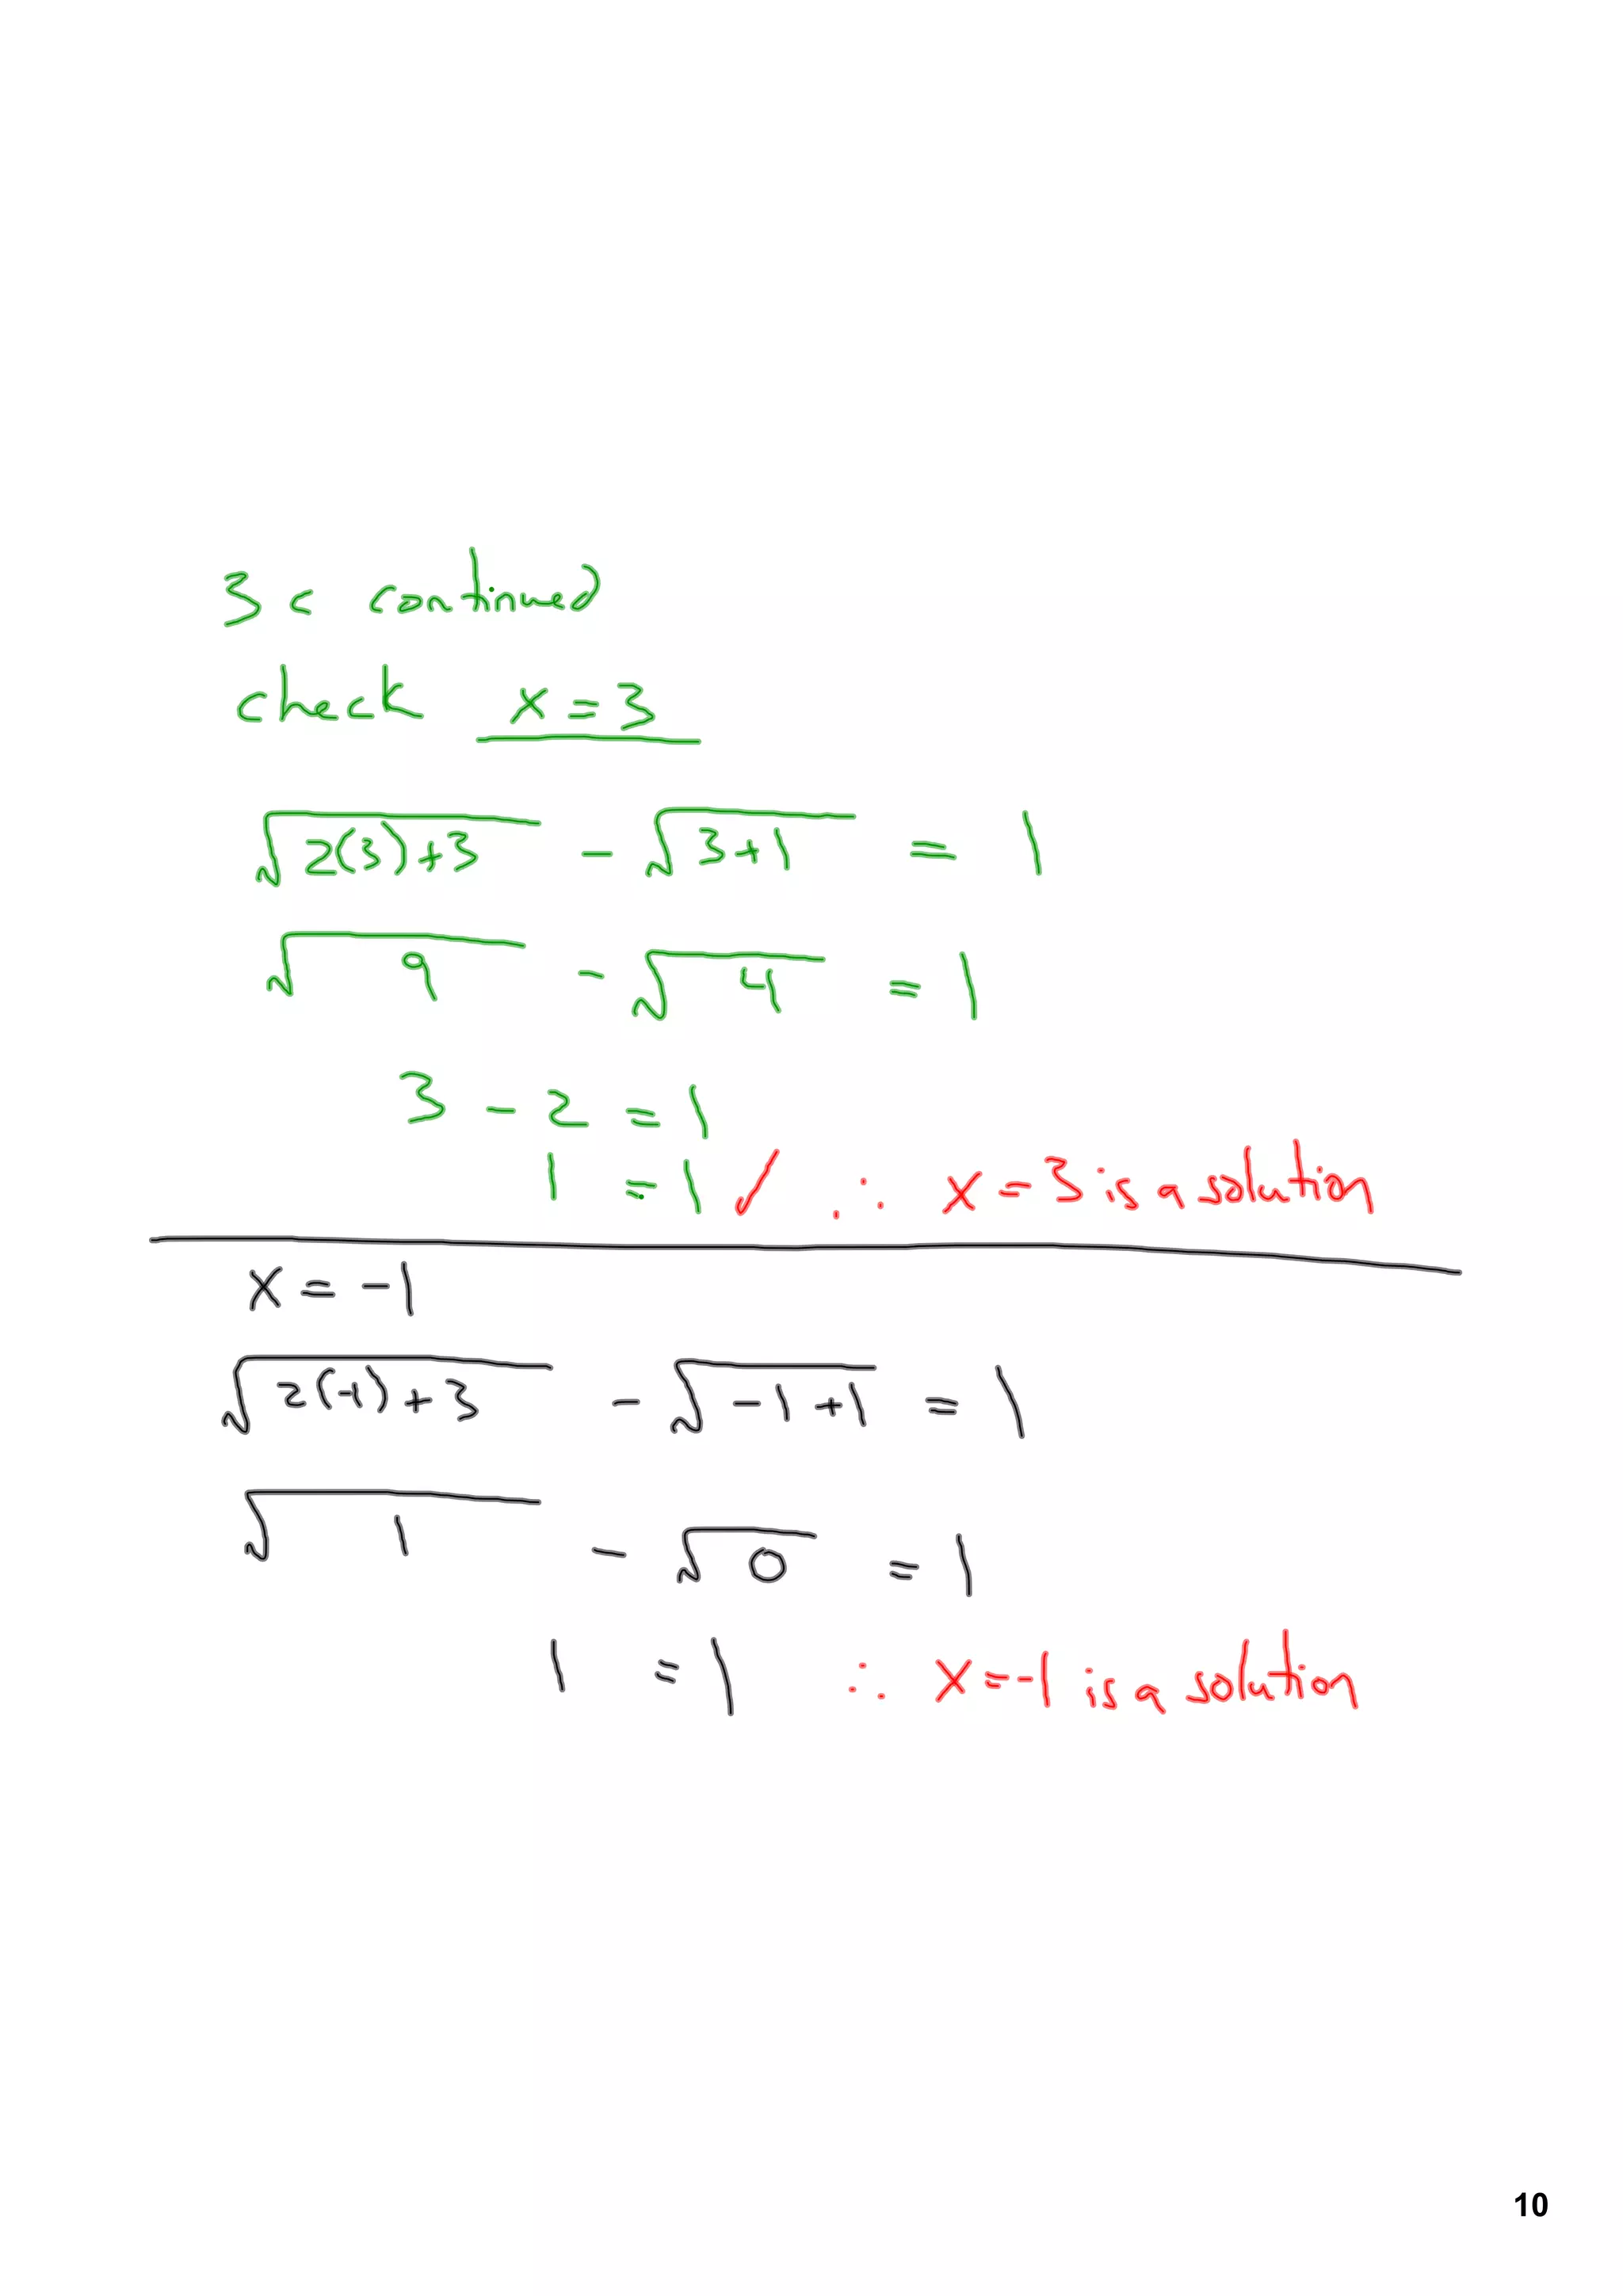 3c continued
check x = 3
√(2(3)+3) - √(3+1) = 1
√9 - √4 = 1
3 - 2 = 1
1 = 1 ✓ ∴ x = 3 is a solution
x = -1
√(2(-1)+3) - √(-1+1) = 1
√1 - √0 = 1
1 = 1 ∴ x = -1 is a solution
10